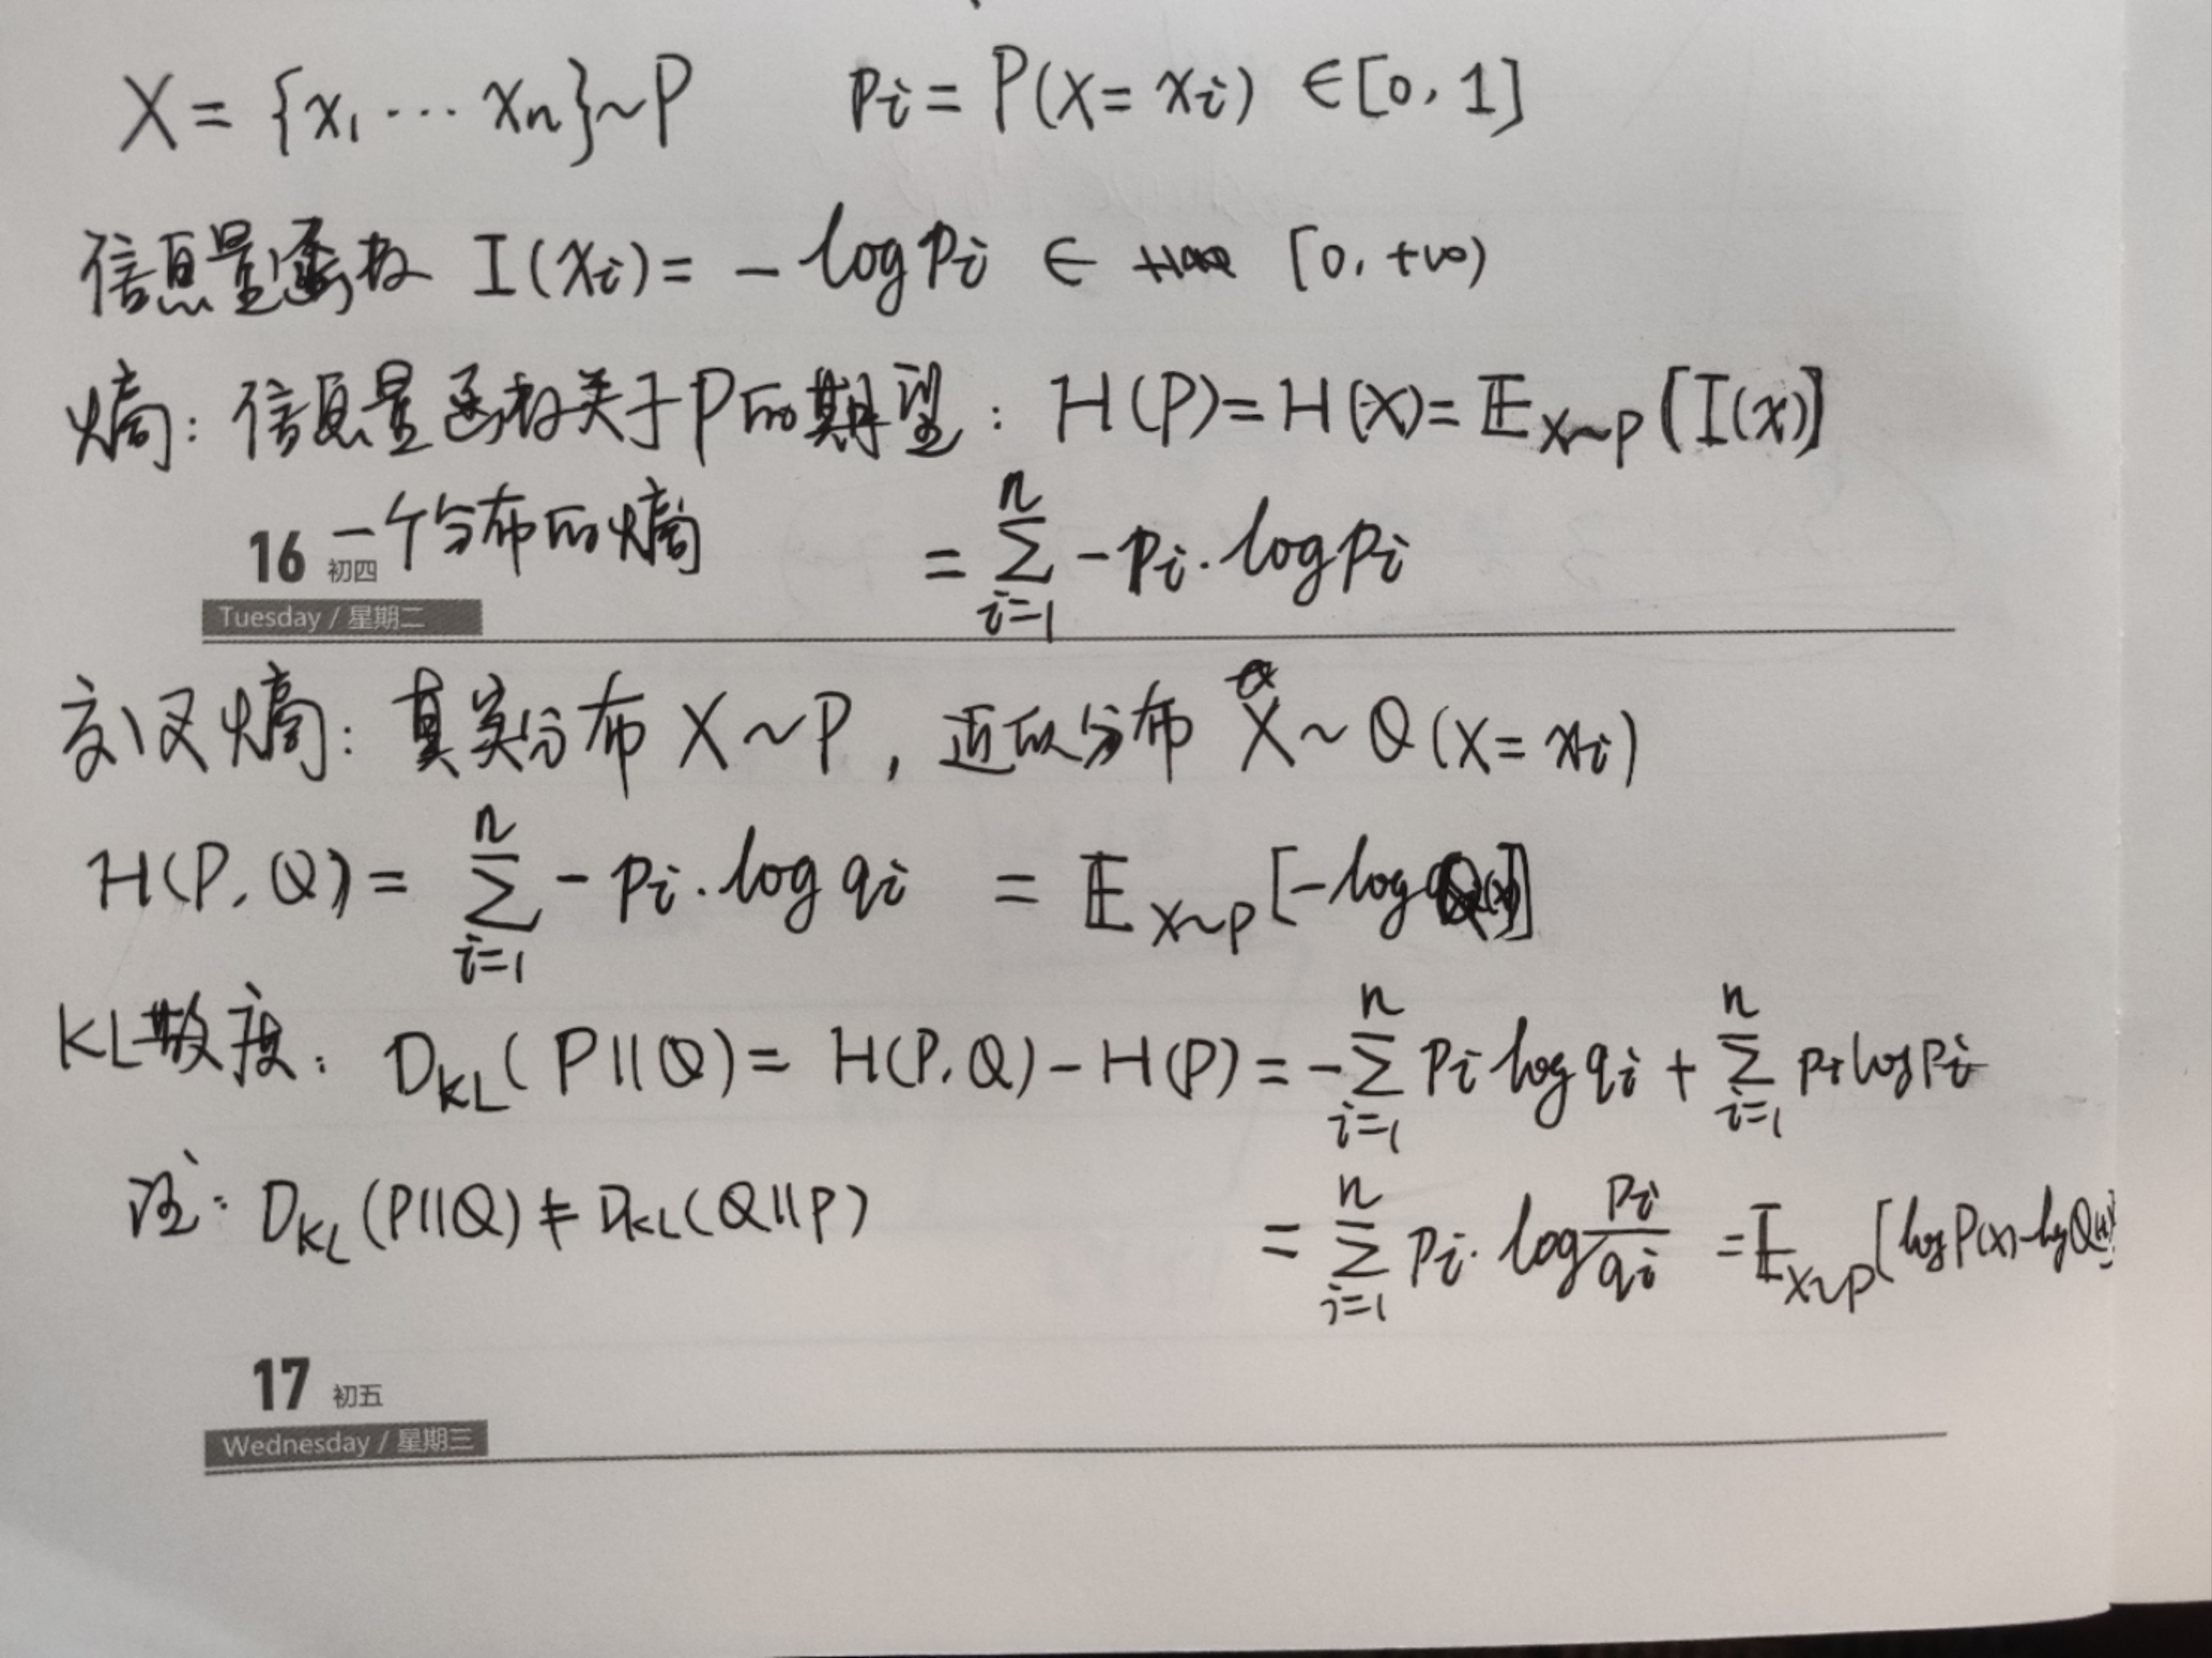 X = {x₁ ⋯ xₙ} ~ P pᵢ = P(X = xᵢ) ∈ [0, 1]
信息量函数 I(xᵢ) = - log pᵢ ∈ [0, +∞)
熵: 信息量函数关于P的期望: H(P) = H(X) = 𝔼_{X~P} [I(x)]
一个分布的熵 = ∑_{i=1}^{n} - pᵢ · log pᵢ
16 初四
Tuesday / 星期二
交叉熵: 真实分布 X ~ P, 近似分布 X ~ Q (X = xᵢ)
H(P, Q) = ∑_{i=1}^{n} - pᵢ · log qᵢ = 𝔼_{X~P} [- log Q(x)]
KL散度: D_{KL}(P||Q) = H(P, Q) - H(P) = - ∑_{i=1}^{n} pᵢ log qᵢ + ∑_{i=1}^{n} pᵢ log pᵢ
注: D_{KL}(P||Q) ≠ D_{KL}(Q||P) = ∑_{i=1}^{n} pᵢ · log pᵢ/qᵢ = 𝔼_{X~P} [log P(x) - log Q(x)]
17 初五
Wednesday / 星期三